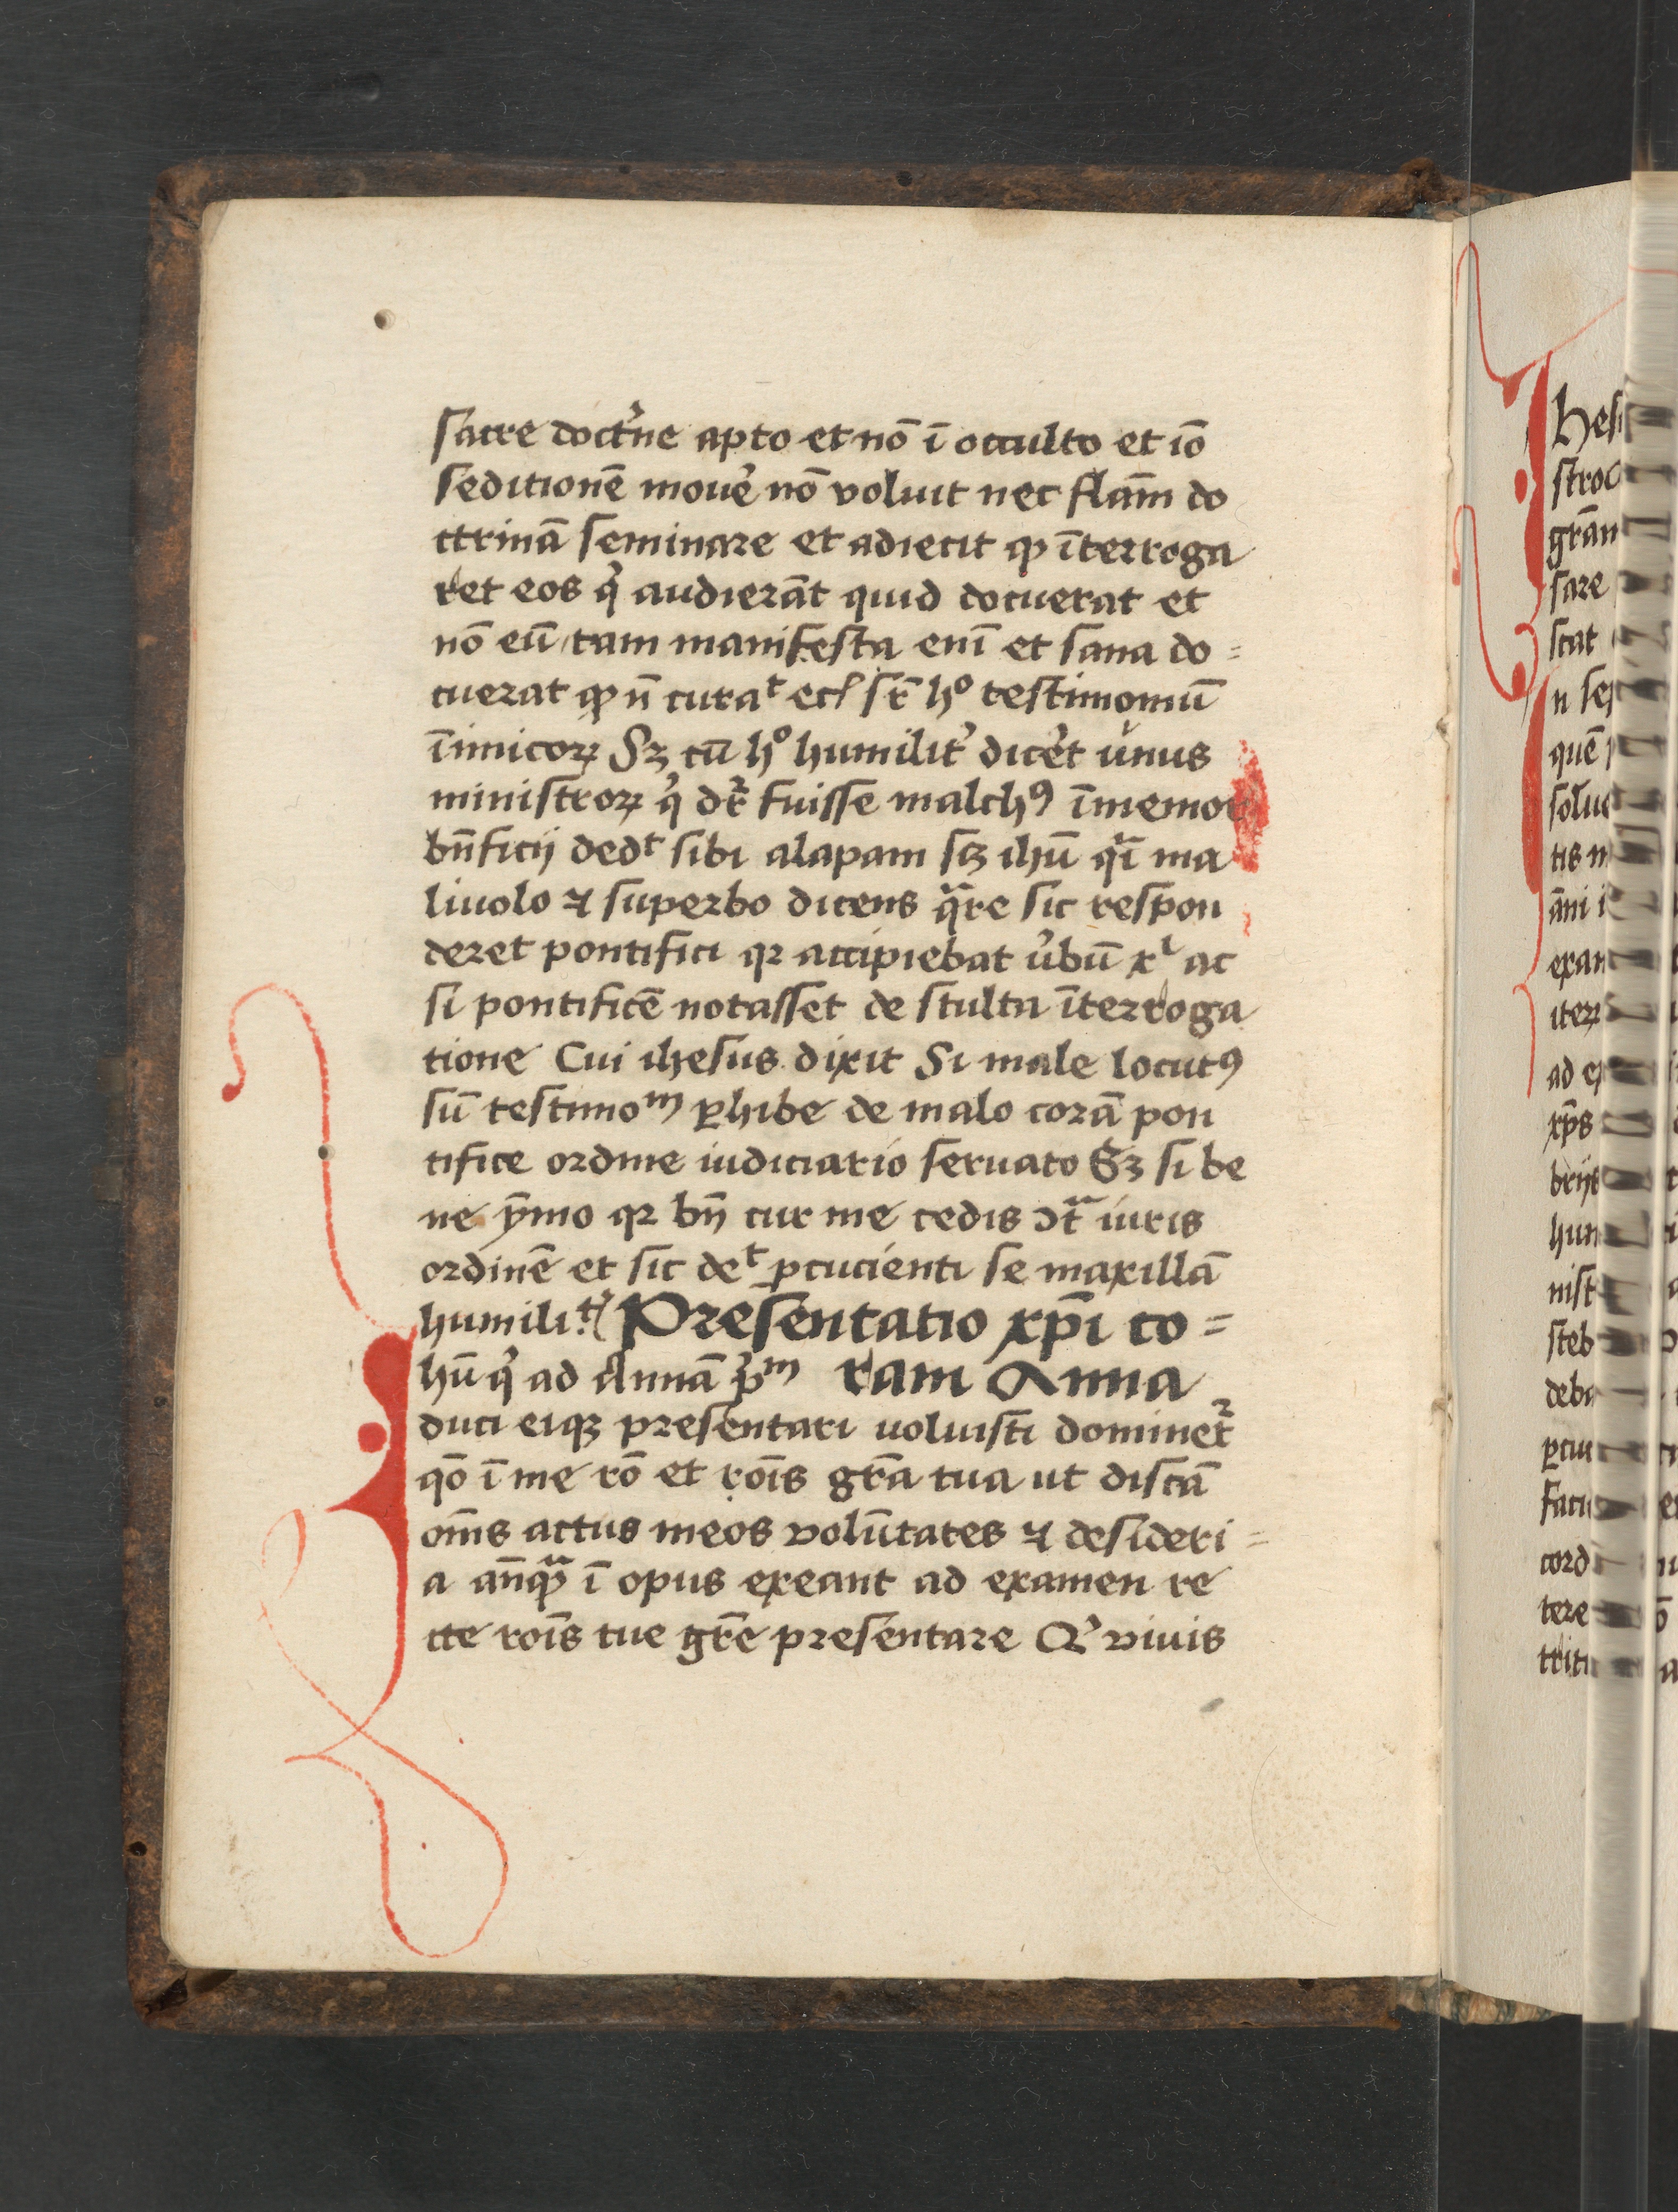 sacre doct'ne apto et nō ī occulto et iō
seditionē moue' nō voluit nec flām do
ctrinā seminare et adiecit ꝙ īterroga
ret eos q' audierāt quid docuerat et
nō eū tam manifesta enī et sana do=
cuerat ꝙ n̄ curaᵗ ecꝭ sr̄ hº testimoniū
īimicoꝝ Sꝫ cū hº humilit' dicēt vnus
ministroꝝ q' dr̄ fuisse malchꝰ īmemor
bn̄ficij dedᵗ sibi alapam sꝫ ihū qͣi ma
liuolo ⁊ superbo dicens qͣre sic respon
deret pontifici qꝛ accipiebat v'bū xⁱ ac
si pontificē notasset de stulta īterroga
tione Cui ihesus dixit Si male locutꝰ
sū testimoᵐ ꝑhibe de malo corā pon
tifice ordine iudiciario seruato Sꝫ si be
ne ȳmo qꝛ bn̄ cur me cedis ↄtͣ iuris
ordinē et sic deᵗ ꝑcucienti se maxillā
humilit' Presentatio xp̄i co=
ram Anna
hū q' ad Annā p'ᵐ
duci eiqꝫ presentari voluisti domineṫ
qō ī me rō et rōis gr̄a tua ut discā
om̄s actus meos volūtates ⁊ desideri=
a an̄qͣꝫ ī opus exeant ad examen re
cte rōis tue gr̄e presentare Q' viuis
hesu
stroc
grān
sare
scat
n se
quē
solue
tis m
āni i
exan
iteꝝ
ad ex
xp̄s
brijs
hum
nist
steb
deba
ꝑcui
faci
cord
tere
triti